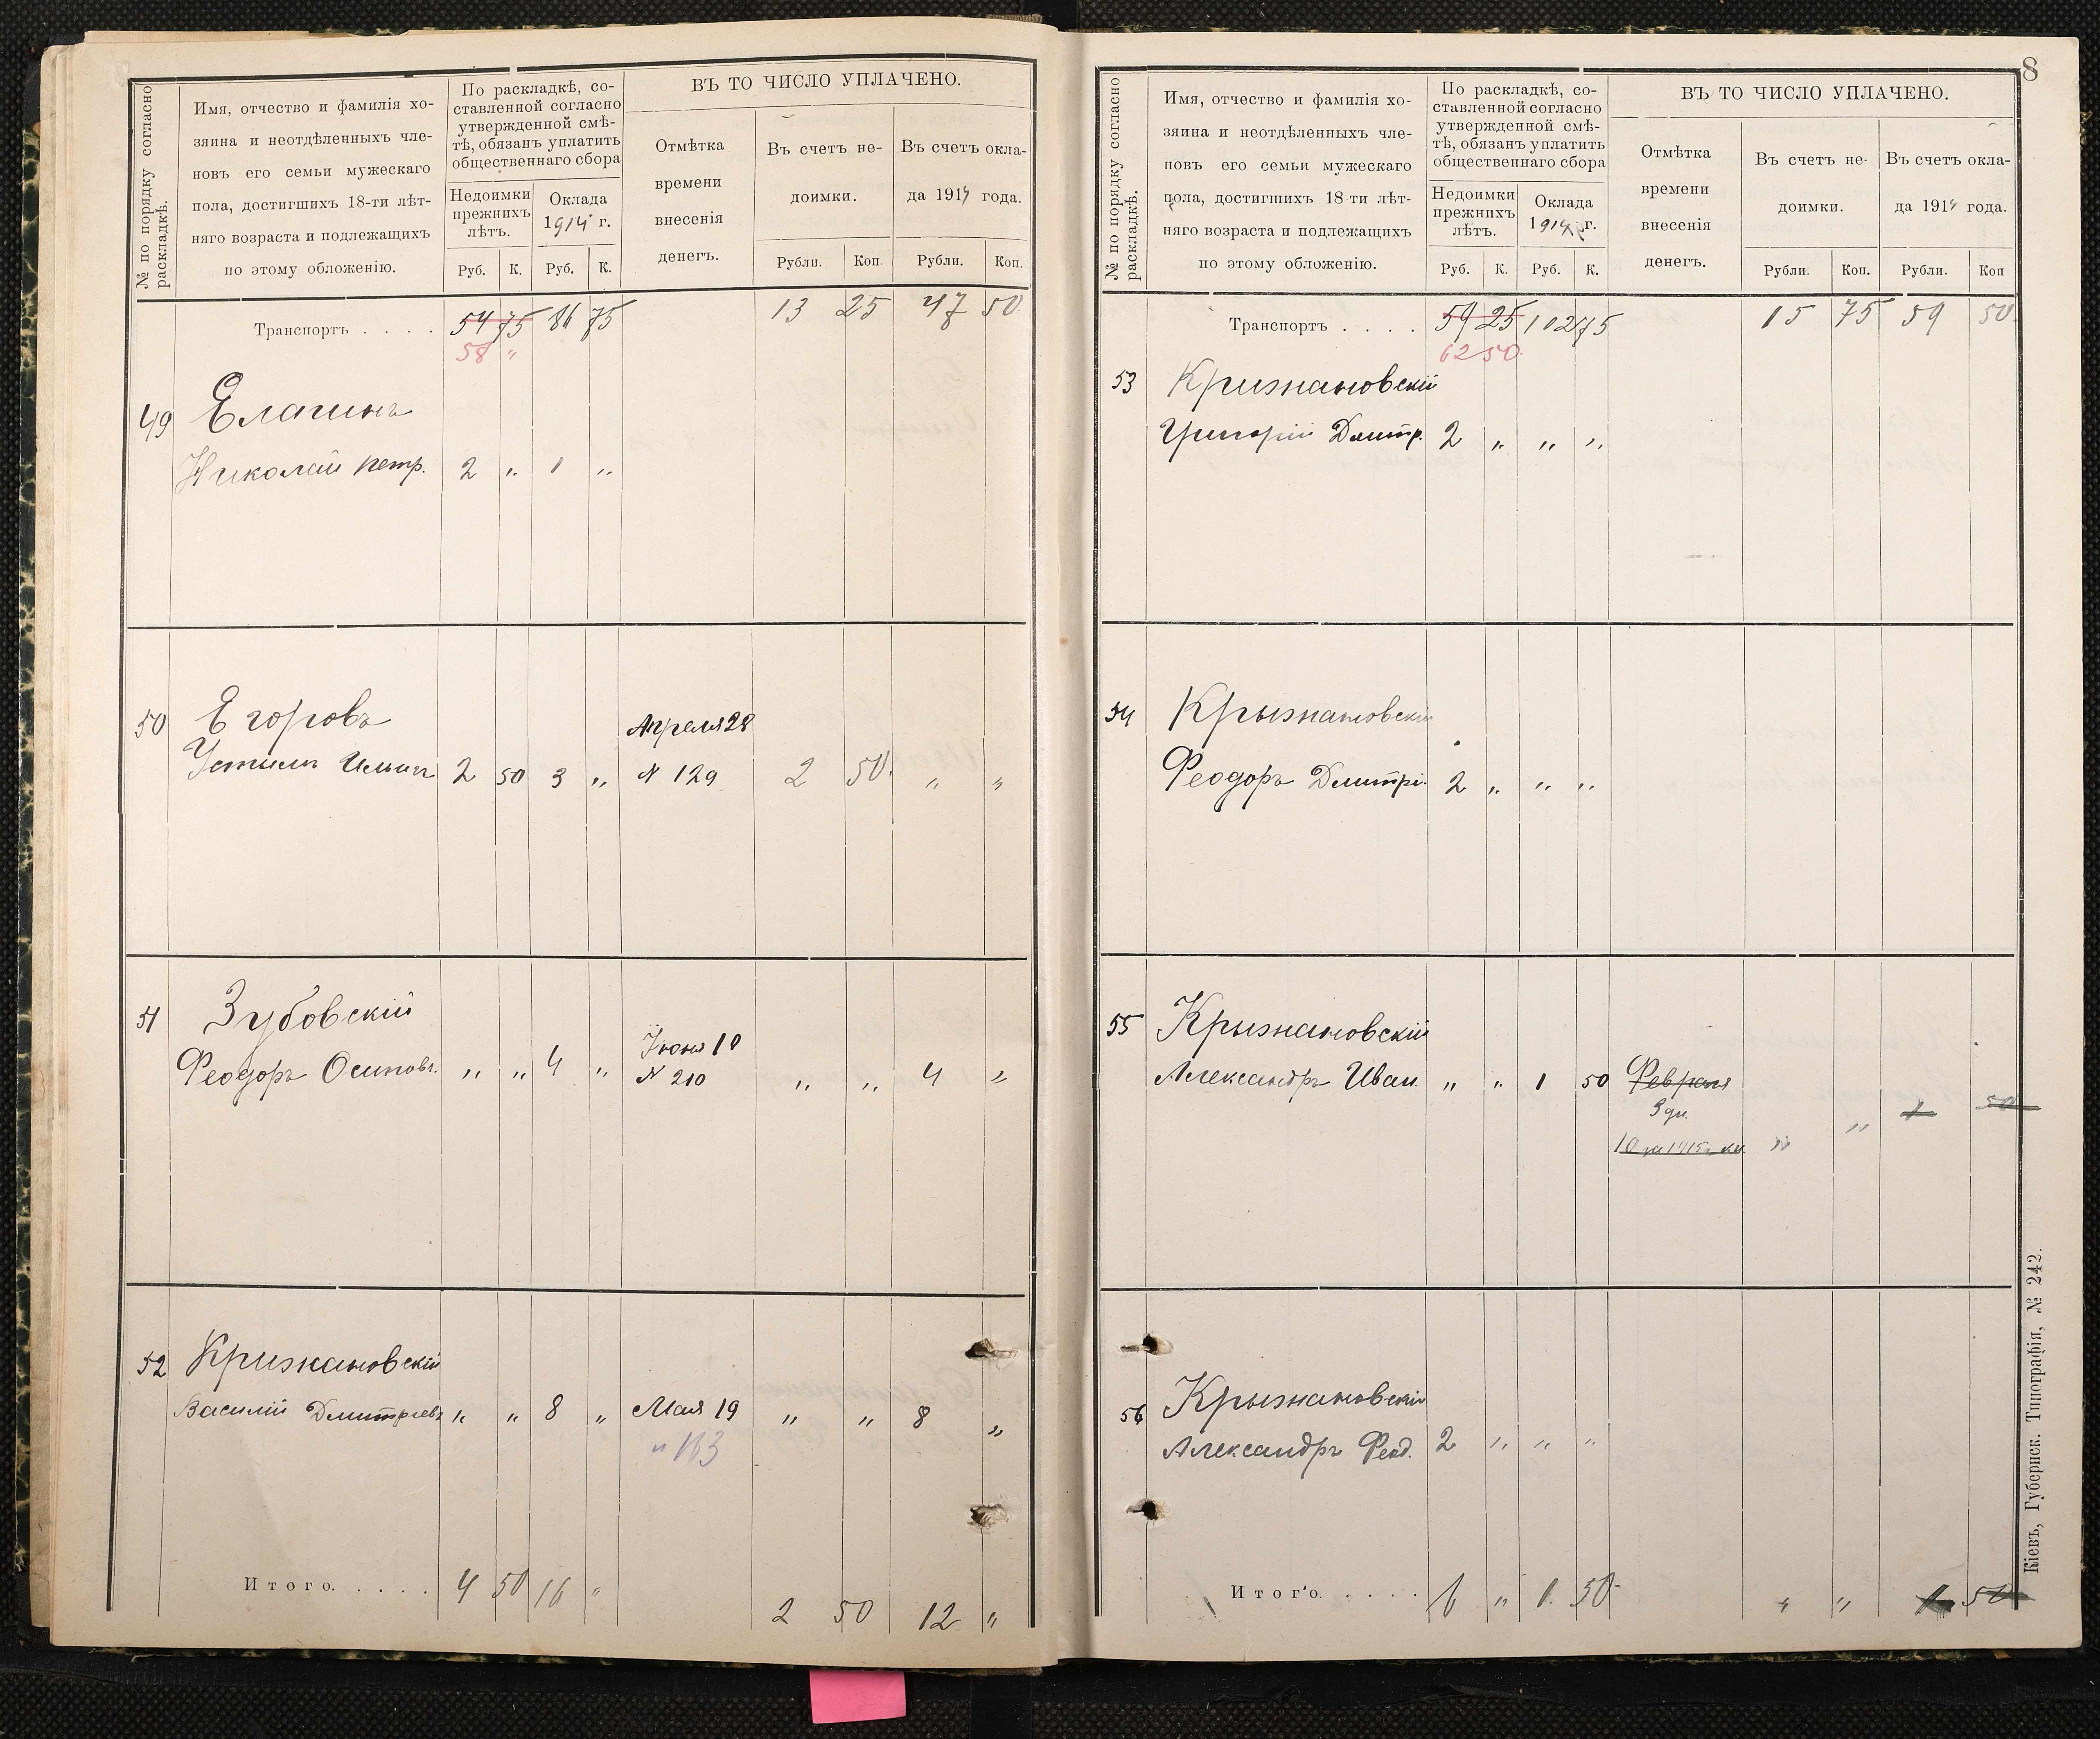 № по порядку согласно
раскладкѣ.
Имя, отчество и фамилія хо-
зяина и неотдѣленныхъ чле-
новъ его семьи мужескаго
пола, достигшихъ 18-ти лѣт-
няго возраста и подлежащихъ
по этому обложенію.
По раскладкѣ, со-
ставленной согласно
утвержденной смѣ-
тѣ, обязанъ уплатить
общественнаго сбора
Недоимки
прежнихъ
лѣтъ.
Оклада
1914 г.
Руб. К. Руб. К.
ВЪ ТО ЧИСЛО УПЛАЧЕНО.
Отмѣтка
времени
внесенія
денегъ.
Въ счетъ не-
доимки.
Въ счетъ окла-
да 1914 года.
Рубли. Коп. Рубли. Коп.
Транспортъ . . . . 54 75 86 75 13 25 47 50
58 „
49 Елагинъ
Николай петр. 2 „ 1 „
50 Егоровъ Апреля 28
Устинъ Ильин 2 50 3 „ № 129 2 50 „ „
51 Зубовскій Іюня 10
Феодоръ Осиповъ. „ „ 4 „ № 210 „ „ 4 „
52 Крижановскій
Василій Дмитріевъ „ „ 8 „ Мая 19 „ „ 8 „
„ 163
Итого. . . . . 4 50 16 „ 2 50 12 „
8
№ по порядку согласно
раскладкѣ.
Имя, отчество и фамилія хо-
зяина и неотдѣленныхъ чле-
новъ его семьи мужескаго
пола, достигшихъ 18 ти лѣт-
няго возраста и подлежащихъ
по этому обложенію.
По раскладкѣ, со-
ставленной согласно
утвержденной смѣ-
тѣ, обязанъ уплатить
общественнаго сбора
Недоимки
прежнихъ
лѣтъ.
Оклада
1914 г.
Руб. К. Руб. К.
ВЪ ТО ЧИСЛО УПЛАЧЕНО.
Отмѣтка
времени
внесенія
денегъ.
Въ счетъ не-
доимки.
Въ счетъ окла-
да 1914 года.
Рубли. Коп. Рубли. Коп
Транспортъ . . . . 59 25 102 75 15 75 59 50
62 50
53 Крижановскій
Григорій Дмитр. 2 „ „ „
54 Крыжановскій
Феодоръ Дмитрі. 2 „ „ „
55 Крыжановскій
Александръ Иван. „ „ 1 50 Февраля
3 дн. „ „ 1 50
10 за 1915 г. кн.
56 Крыжановскій
Александръ Феод. 2 „ „ „
Итого. . . . . 6 „ 1 50 „ „ 1 50
Кіевъ, Губернск. Типографія, № 242.